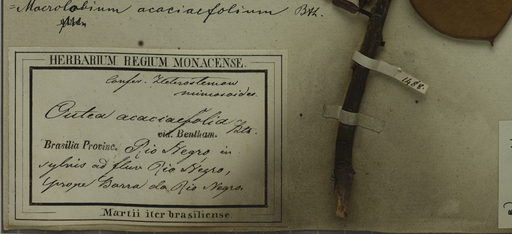 = Macrolobium acaciaefolium Bth.
HERBARIUM REGIUM MONACENSE.
Confer. Heterostemon
mimosoides.
Outea acaciaefolia Bth.
vid. Bentham.
Brasilia Provinc. Rio Negro in
sylvis ad fluv. Rio Negro,
prope Barra do Rio Negro.
Martii iter brasiliense
1488.